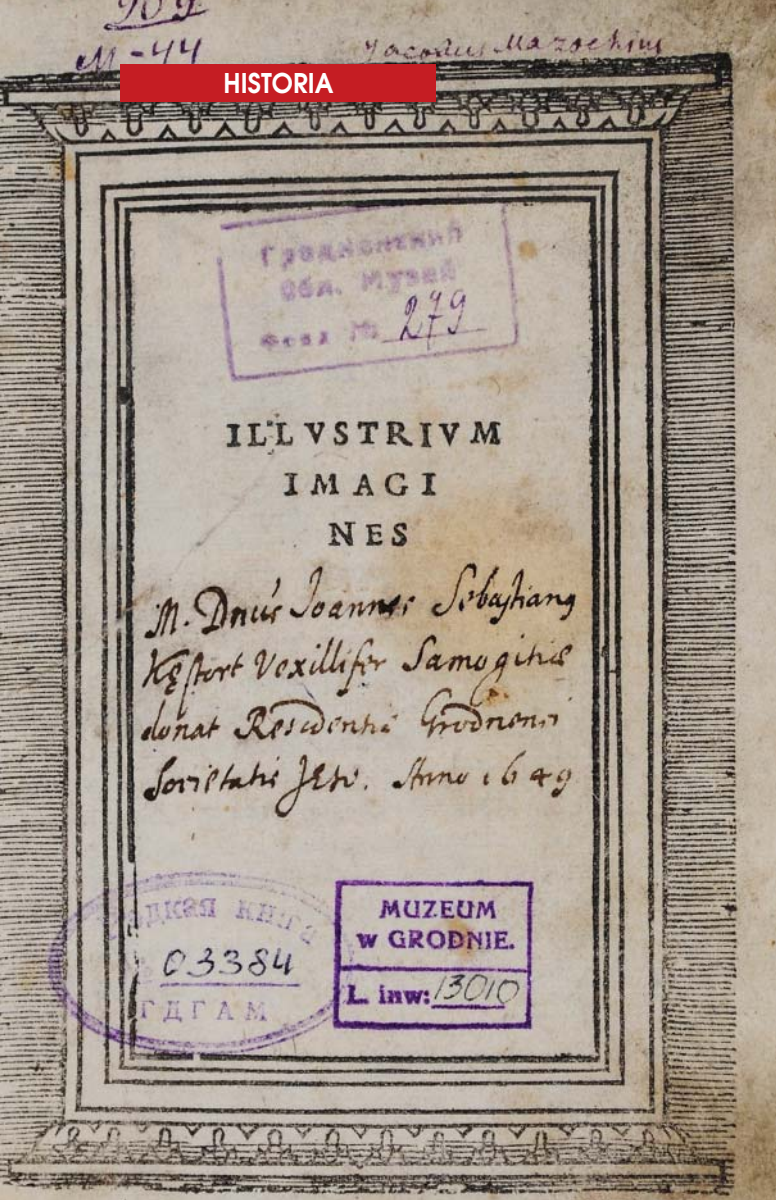 909
M-44
Jacobus Mazochius
HISTORIA
Гродненский
Обл. Музей
Фонд № 279
ILLVSTRIVM
IMAGI
NES
M. Dnus Joannes Sebastianus
Kęstort Vexillifer Samogitiæ
donat Residentiæ Grodnensi
Societatis Jesu. Anno 1649
Редкая книга
№ 03384
ГДГАМ
MUZEUM
w GRODNIE.
L. inw: 13010